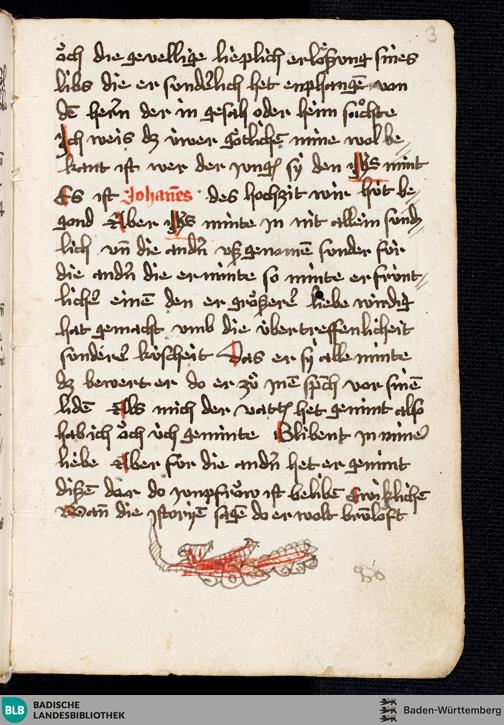 3
öch die gevellige lieplich erlößung sines
libs die er sunderlich het enphangē von
dē herrn der in gesach oder heim sůchte
Ich weis dz üwer götlichē mine wol be
kant ist wer der jung sÿ den Jhs mint
Es ist Johanēs des hochzit wir hüt be
gond Aber Jhs minte in nit allein sund
lich vn die andn vß genomē sunder für
die andn die er minte so minte er frünt
licher einē den er größerer liebe wirdig
hat gemacht vmb die übertreffenlicheit
sonderer küscheit Das er sÿ alle minte
dz bewert er do er zů jnē sprch vor sinē
lidē Als mich der vatter het gemint also
hab ich öch üch geminte Blibent jn miner
liebe Aber für die andn het er gemint
disen dar do junpfröw ist belibē ewiklichē
Wan die jstorÿē sagē do er wolt brutlöft
BLB
BADISCHE
LANDESBIBLIOTHEK
Baden-Württemberg